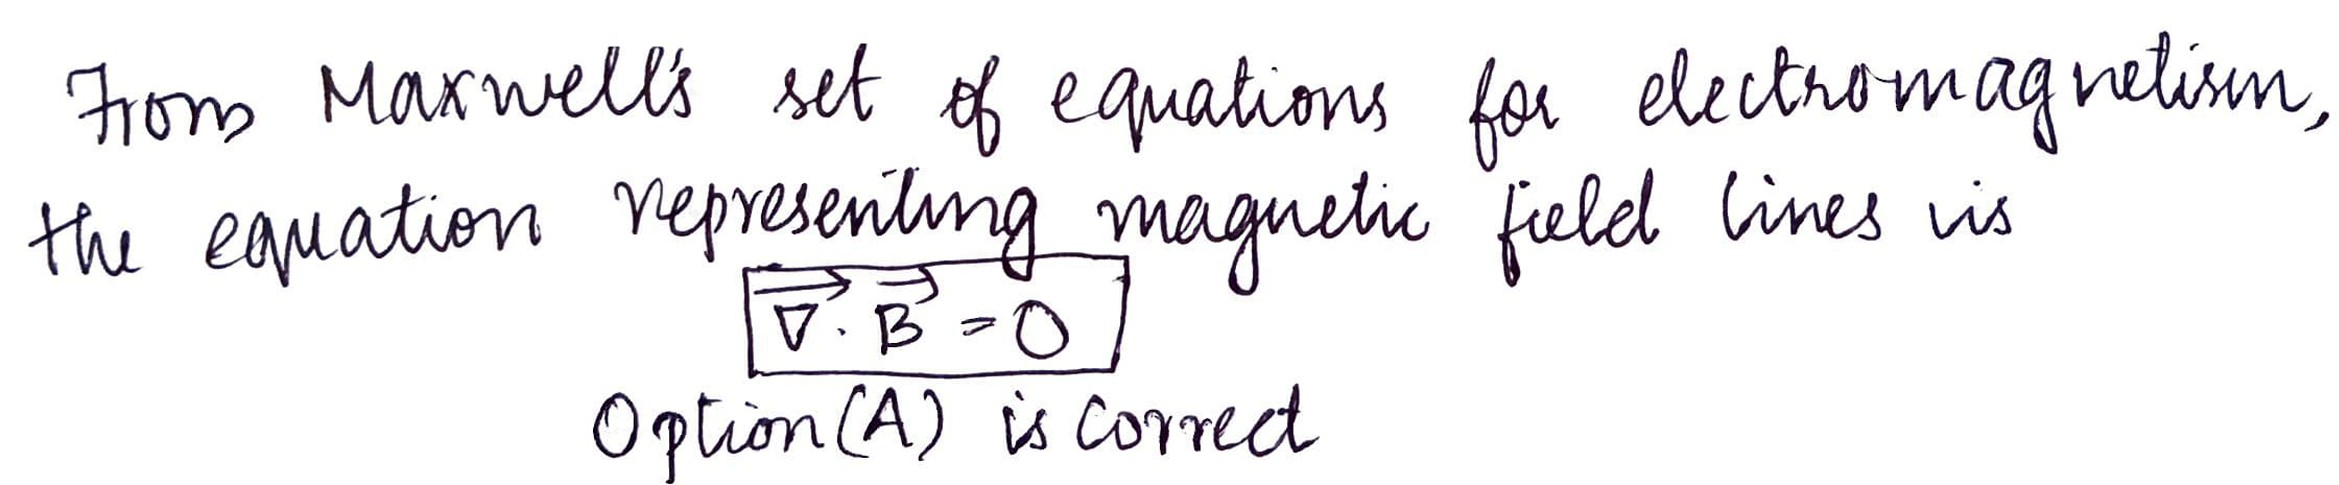 From Maxwell's set of equations for electromagnetism,
the equation representing magnetic field lines is
∇⃗ · B⃗ = 0
Option (A) is correct